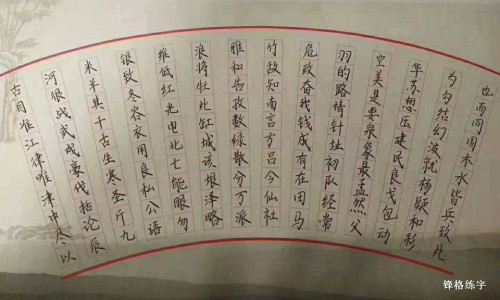 也而雨周木水皆兵玫九
为勾结幻波就杨颖和彩
华苏想压建民良戈包动
空美是要采象最孟然父
羽的路情针址初队经常
危政奋我钱成有在田马
竹敌知南言方吕今仙社
雅和告孜数绿散分万派
浪将牡北缸城该垠泽略
维低红光电北七能眼勿
银致冬容衣用良私公语
米羊其千舌生寒圣斤九
河很战武戏豪代枯论辰
古同准江律唯津中冬以
锋格练字